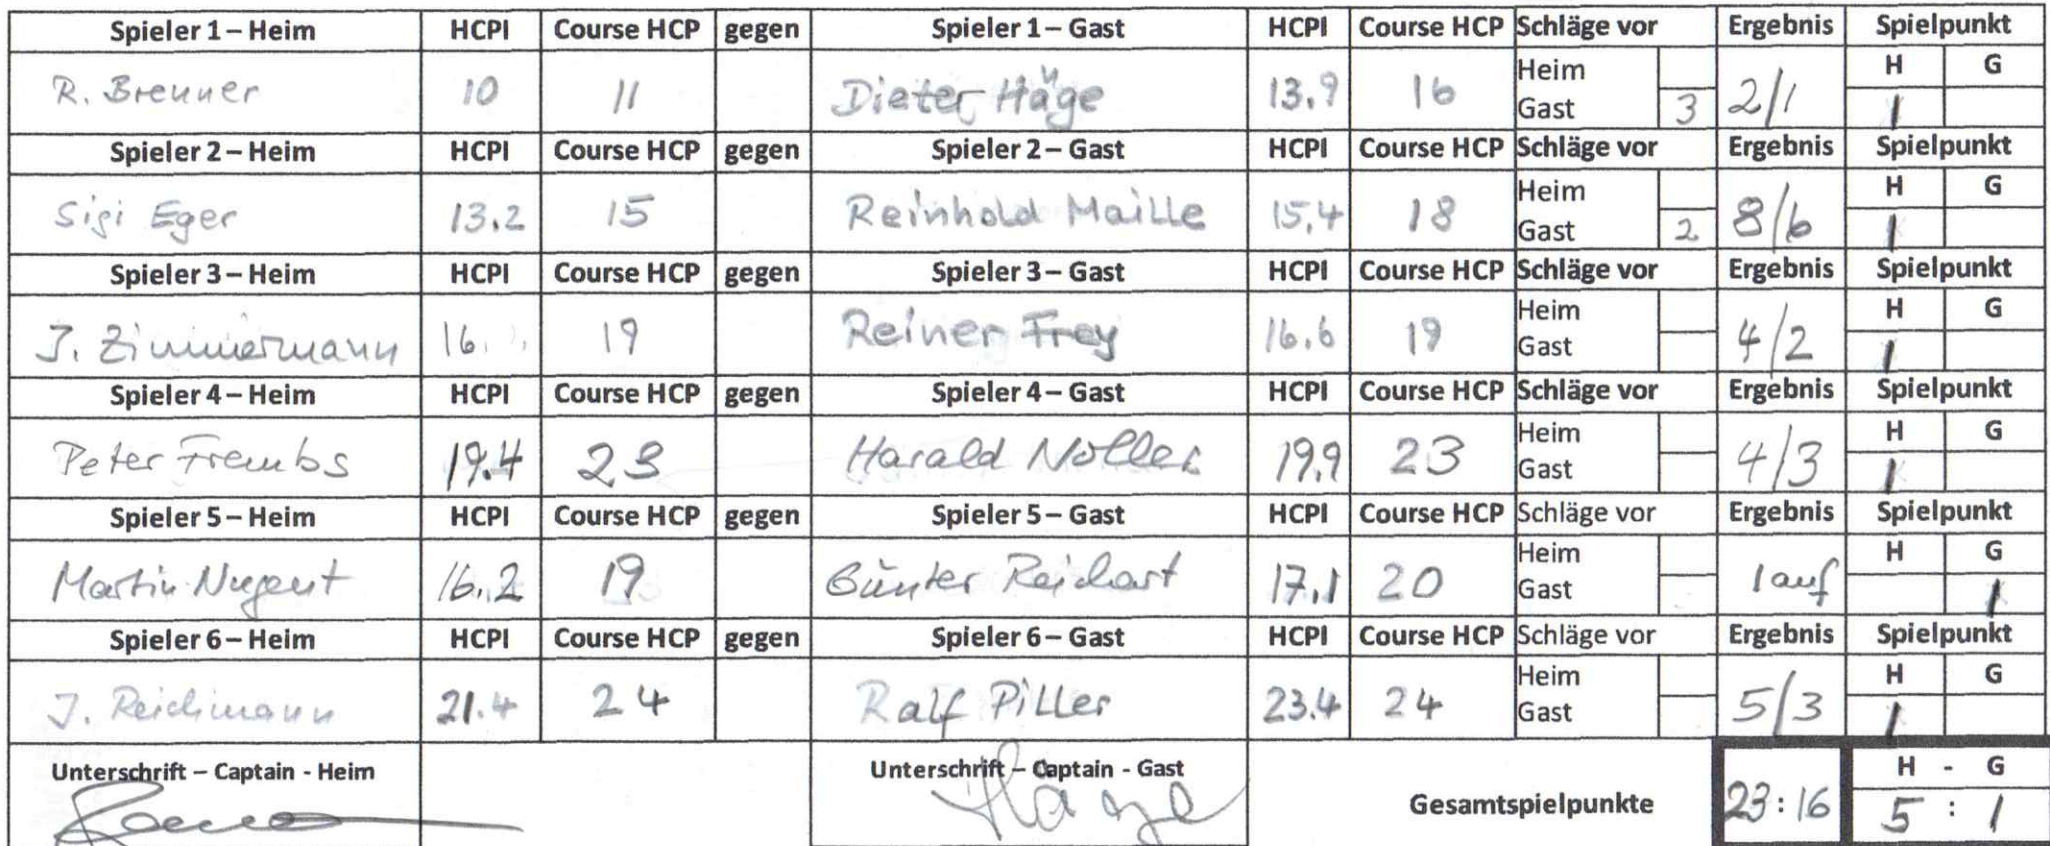 Spieler 1 – Heim HCPI Course HCP gegen Spieler 1 – Gast HCPI Course HCP Schläge vor Ergebnis Spielpunkt
R. Brenner 10 11 Dieter Häge 13.9 16 Heim 2/1 H G
Gast 3 1
Spieler 2 – Heim HCPI Course HCP gegen Spieler 2 – Gast HCPI Course HCP Schläge vor Ergebnis Spielpunkt
Sigi Eger 13.2 15 Reinhold Maille 15,4 18 Heim 8/6 H G
Gast 2 1
Spieler 3 – Heim HCPI Course HCP gegen Spieler 3 – Gast HCPI Course HCP Schläge vor Ergebnis Spielpunkt
J. Zimmermann 16. 19 Reiner Frey 16.6 19 Heim 4/2 H G
Gast 1
Spieler 4 – Heim HCPI Course HCP gegen Spieler 4 – Gast HCPI Course HCP Schläge vor Ergebnis Spielpunkt
Peter Frembs 19.4 23 Harald Noller 19,9 23 Heim 4/3 H G
Gast 1
Spieler 5 – Heim HCPI Course HCP gegen Spieler 5 – Gast HCPI Course HCP Schläge vor Ergebnis Spielpunkt
Martin Nugent 16.2 19 Günter Reichart 17,1 20 Heim 1 auf H G
Gast 1
Spieler 6 – Heim HCPI Course HCP gegen Spieler 6 – Gast HCPI Course HCP Schläge vor Ergebnis Spielpunkt
J. Reichmann 21.4 24 Ralf Piller 23.4 24 Heim 5/3 H G
Gast 1
Unterschrift – Captain - Heim Unterschrift – Captain - Gast H - G
Häge Gesamtspielpunkte 23:16 5 : 1